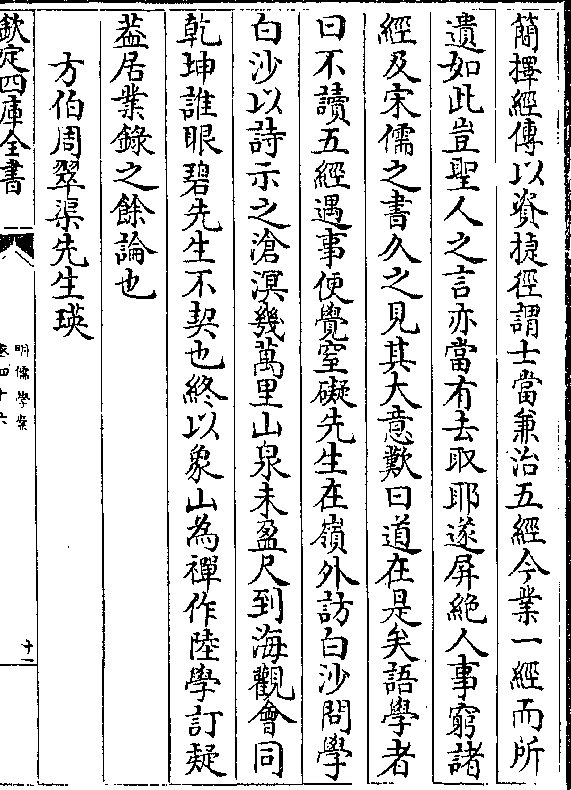 簡擇經傳以資捷徑謂士當兼治五經今業一經而所
遺如此豈聖人之言亦當有去取耶遂屏絕人事窮諸
經及宋儒之書久之見其大意歎曰道在是矣語學者
曰不讀五經遇事便覺窒礙先生在嶺外訪白沙問學
白沙以詩示之滄溟幾萬里山泉未盈尺到海觀會同
乾坤誰眼碧先生不契也終以象山為禪作陸學訂疑
葢居業錄之餘論也
方伯周翠渠先生瑛
欽定四庫全書
明儒學案
卷四十六
十一